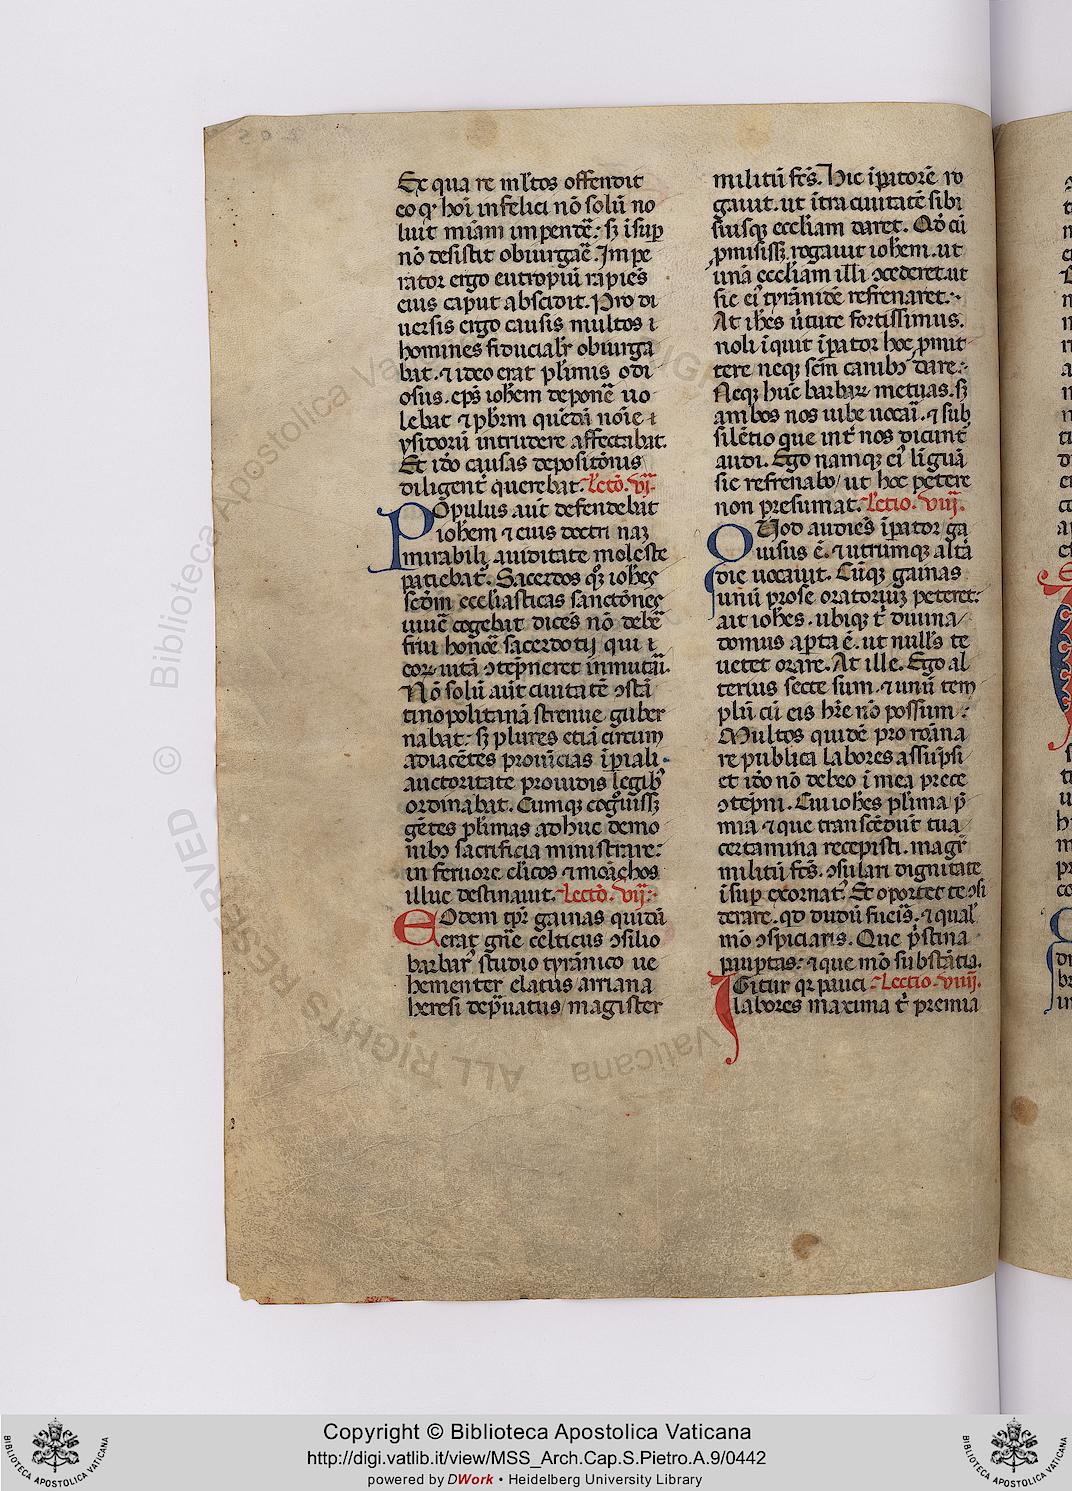 Ex qua re ml̃tos offendit
eo qr̃ hoĩ infelici nõ solũ no
luit miãm impendẽ: sʒ ĩsuꝑ
nõ desistit obiurgãẽ. Impe
rator ergo eutropiũ rapiẽs
eius caput abscidit. Pro di
uersis ergo causis multos ⁊
homines fiducialr̃ obiurga
bat. ⁊ ideo erat pl̃imis odi
osus. eps̃ ioh̃em deponẽ uo
lebat ⁊ pb̃rm quẽdã noĩe ⁊
ysidorũ intrudere affectabat.
Et id̃o causas depositõnis
diligent̃ querebat. Lectõ. vĩ.
Põpulus aut̃ defendebat
ioh̃em ⁊ eius doctrinaʒ
mirabili auiditate moleste
patiebat̃. Sacerdos qʒ ioh̃es
scd̃m eccl̃iasticas sanctõnes
uiuẽ cogebat dicẽs nõ debẽ
frui honõẽ sacerdotij qui ⁊
coꝝ uitã ↄtẽpneret inmitãi.
Nõ solũ aut̃ ciuitatẽ ↄstã
tinopolitanã strenue guber
nabat: sʒ plures etiã circum
adiacẽtes prouĩcias ĩpiali
auctoritate prouidis legibʒ
ordinabat. Cumqʒ cog̃uissʒ
gẽtes pl̃imas adhuc demo
nibʒ sacrificia ministrare:
in feruore cl̃icos ⁊ mõachos
illuc destinauit. Lectõ. vij.
Eodem tpr̃ gainas quidã
erat gñe celticus ↄsilio
barbar̃ studio tyrãnico ue
hementer elatus/ arriana
heresi dep̃uatus/ magister
militũ fc̃s. Hic ĩpatorẽ ro
gauit. ut ĩtra ciuitatẽ sibi
suisqʒ eccl̃iam daret. Qd̃ cũ
ꝓmisissʒ rogauit ioh̃em. ut
unã eccl̃iam illi ↄcederet. ut
sic eĩ tyrãnidẽ refrenaret.
At ioh̃es ũtute fortissimus.
noli inquit ĩpator hoc ꝓmit
tere neqʒ sc̃m canibʒ dare.
Neqʒ hũc barbaꝝ metuas. sʒ
ambos nos iube uocari. ⁊ sub
silẽtio que int̃ nos dicunt̃
audi. Ego namqʒ eĩ linguã
sic refrenabo/ ut hoc petere
non presumat. Lectio. viij.
Quod audiẽs ĩpator ga
uisus ẽ. ⁊ utrumqʒ altã
die uocauit. Cũqʒ gainas
unũ pro se oratoriũʒ peteret:
ait ioh̃es. ubiqʒ t̃ diuina
domus aꝑta ẽ. ut null̃s te
uetet orare. At ille. Ego al
terius secte sum. ⁊ unũ tem
plũ cũ eis hr̃e nõ possum.
Multos quidẽ pro romana
re publica labores assũpsi
et id̃o nõ debeo ĩ mea prece
ↄtẽpni. Cui ioh̃es pl̃ima p̃
mia ⁊ que transcẽdũt tua
certamina recepisti. magr̃
militũ fc̃s. ↄsulari dignitate
ĩsuꝑ exornat̃. Et oportet te ↄsi
derare. qd̃ dudũ fueris. ⁊ qual̃
mõ ↄspiciaris. Que p̃stina
pauꝑtas: ⁊ que mõ substãtia.
Igitur qr̃ pauci Lectio. viiij.
labores maxima t̃ premia
Copyright © Biblioteca Apostolica Vaticana
http://digi.vatlib.it/view/MSS_Arch.Cap.S.Pietro.A.9/0442
powered by DWork • Heidelberg University Library